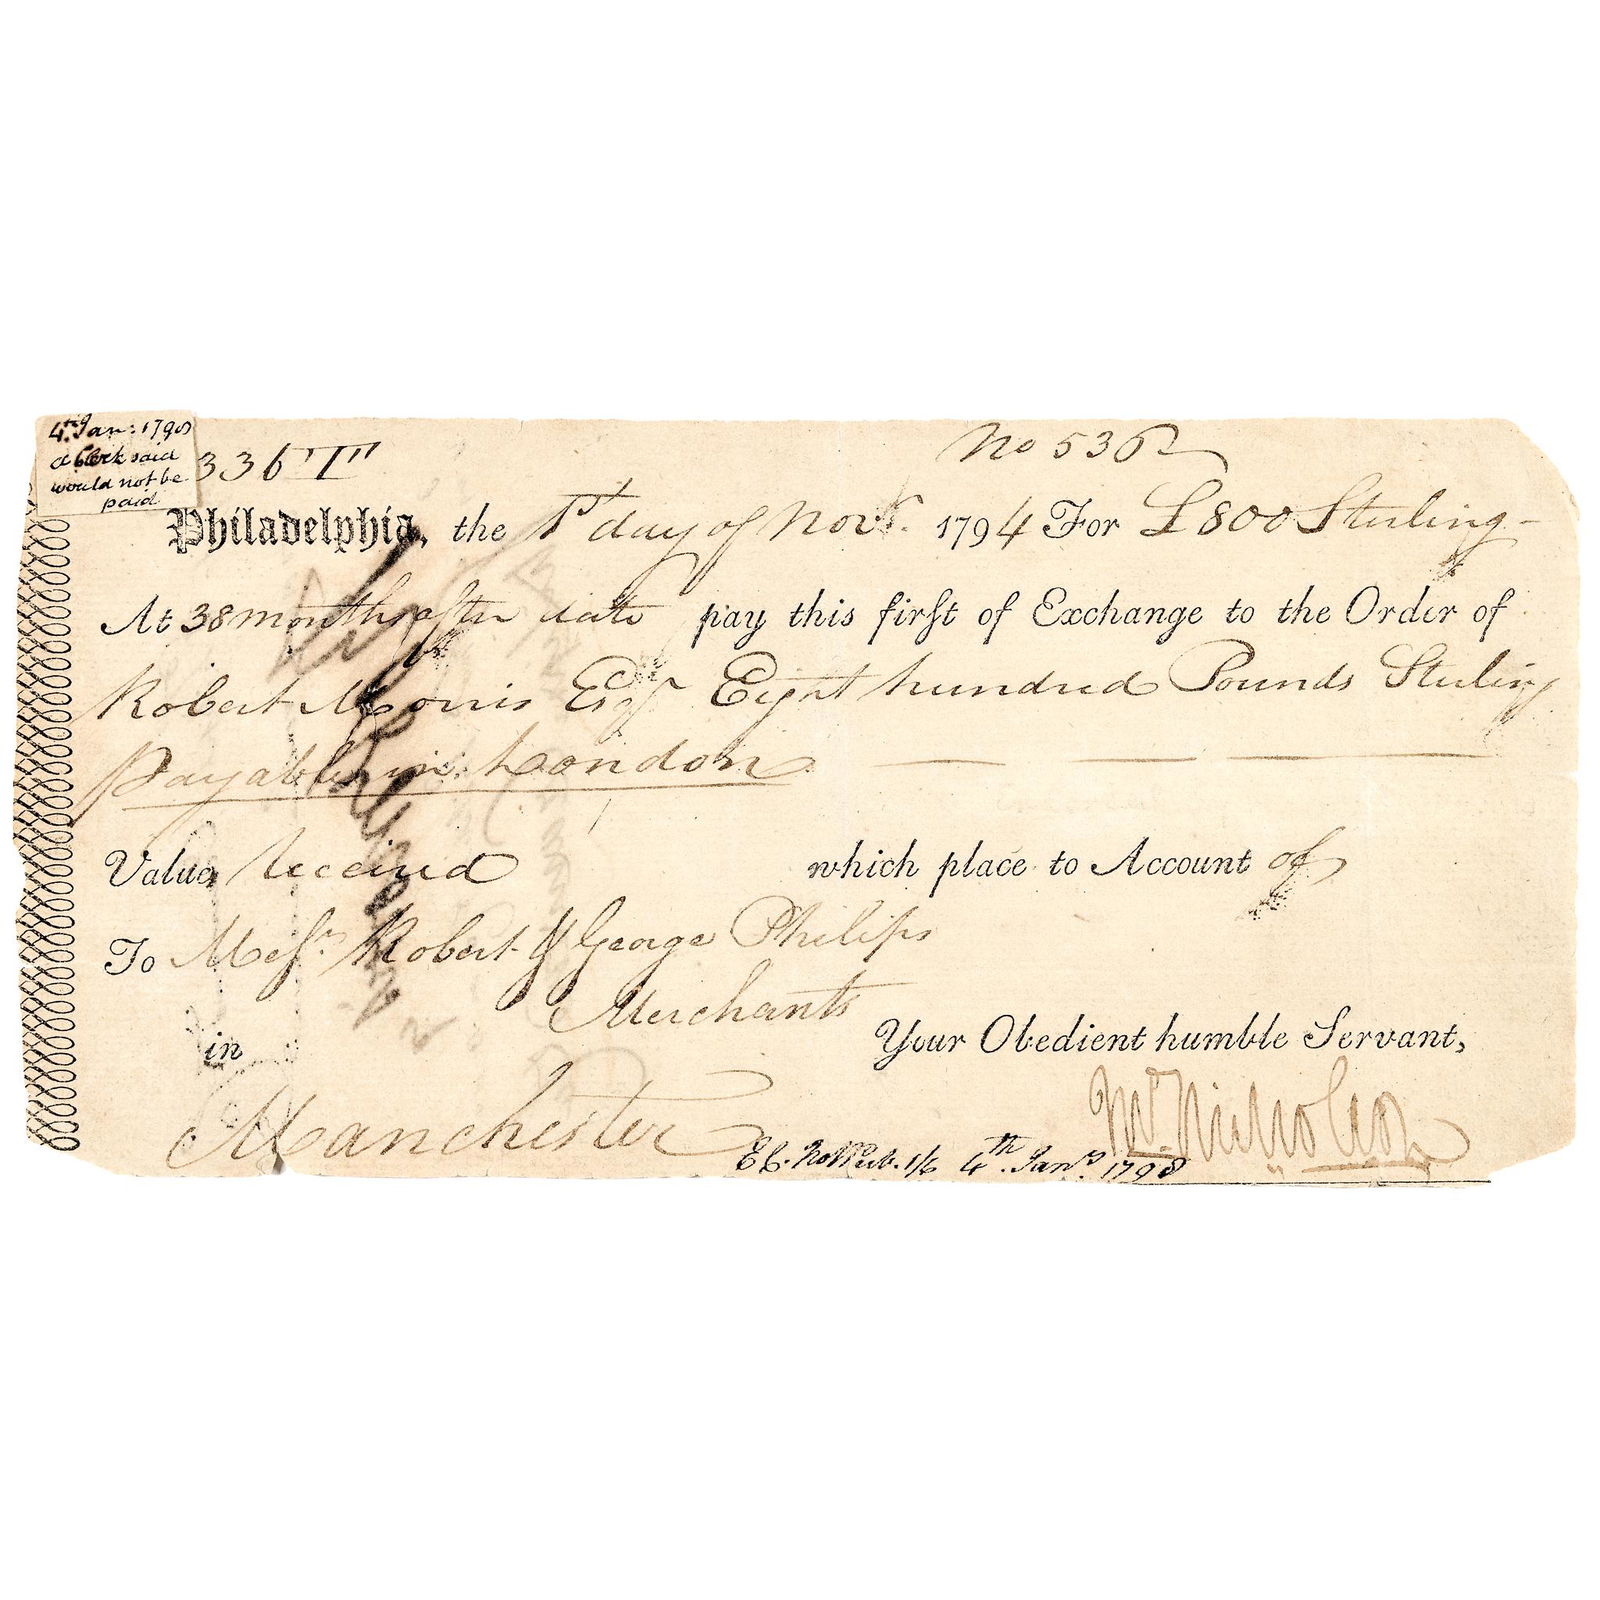 4th Jan: 1798
a Clerk said
would not be
paid
336 "T"
No 536
Philadelphia, the 1st day of Novr. 1794 For £800 Sterling -
At 38 months after date pay this first of Exchange to the Order of
Robert Morris Esqr Eight hundred Pounds Sterling
Payable in London
Value received which place to Account of
To Messrs. Robert & George Philips
Merchants
in
Your Obedient humble Servant,
Manchester
Nicholson
1/6 4th. Jany. 1798